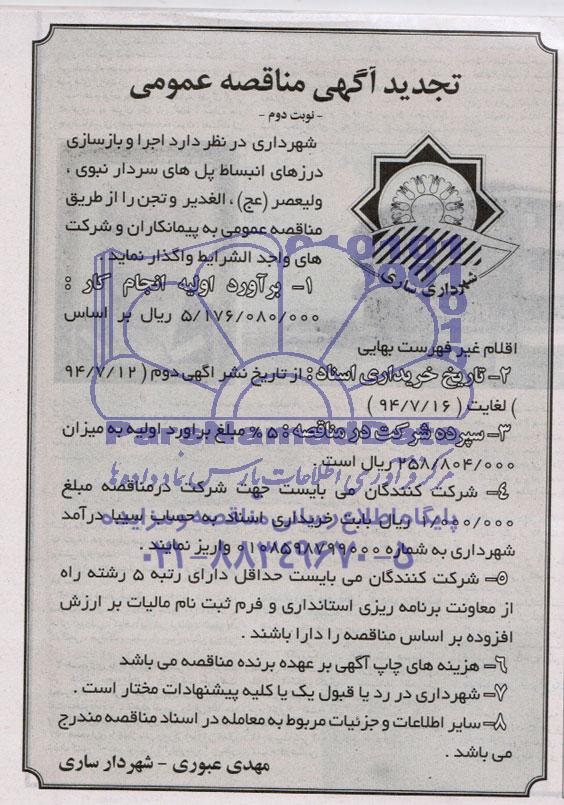 تجدید آگهی مناقصه عمومی
- نوبت دوم -
شهرداری در نظر دارد اجرا و بازسازی
درزهای انبساط پل های سردار نبوی ،
ولیعصر (عج) ، الغدیر و تجن را از طریق
مناقصه عمومی به پیمانکاران و شرکت
های واجد الشرایط واگذار نماید .
شهرداری ساری
۱- برآورد اولیه انجام کار :
۵/۱۷۶/۰۸۰/۰۰۰ ریال بر اساس
اقلام غیر فهرست بهایی
۲- تاریخ خریداری اسناد : از تاریخ نشر اگهی دوم ( ۹۴/۷/۱۲
) لغایت ( ۹۴/۷/۱۶ )
۳- سپرده شرکت در مناقصه : ۵ % مبلغ براورد اولیه به میزان
۲۵۸/۸۰۴/۰۰۰ ریال است .
۴- شرکت کنندگان می بایست جهت شرکت درمناقصه مبلغ
۱/۰۰۰/۰۰۰ ریال بابت خریداری اسناد به حساب سیبا درآمد
شهرداری به شماره ۰۱۰۸۵۹۸۷۹۹۰۰۰ واریز نمایند .
۵- شرکت کنندگان می بایست حداقل دارای رتبه ۵ رشته راه
از معاونت برنامه ریزی استانداری و فرم ثبت نام مالیات بر ارزش
افزوده بر اساس مناقصه را دارا باشند .
۶- هزینه های چاپ آگهی بر عهده برنده مناقصه می باشد
۷- شهرداری در رد یا قبول یک یا کلیه پیشنهادات مختار است .
۸- سایر اطلاعات و جزئیات مربوط به معامله در اسناد مناقصه مندرج
می باشد .
مهدی عبوری - شهردار ساری
مرکز فرآوری اطلاعات پارس نماد داده ها
۰۲۱-۸۸۳۴۹۶۷۰-۵